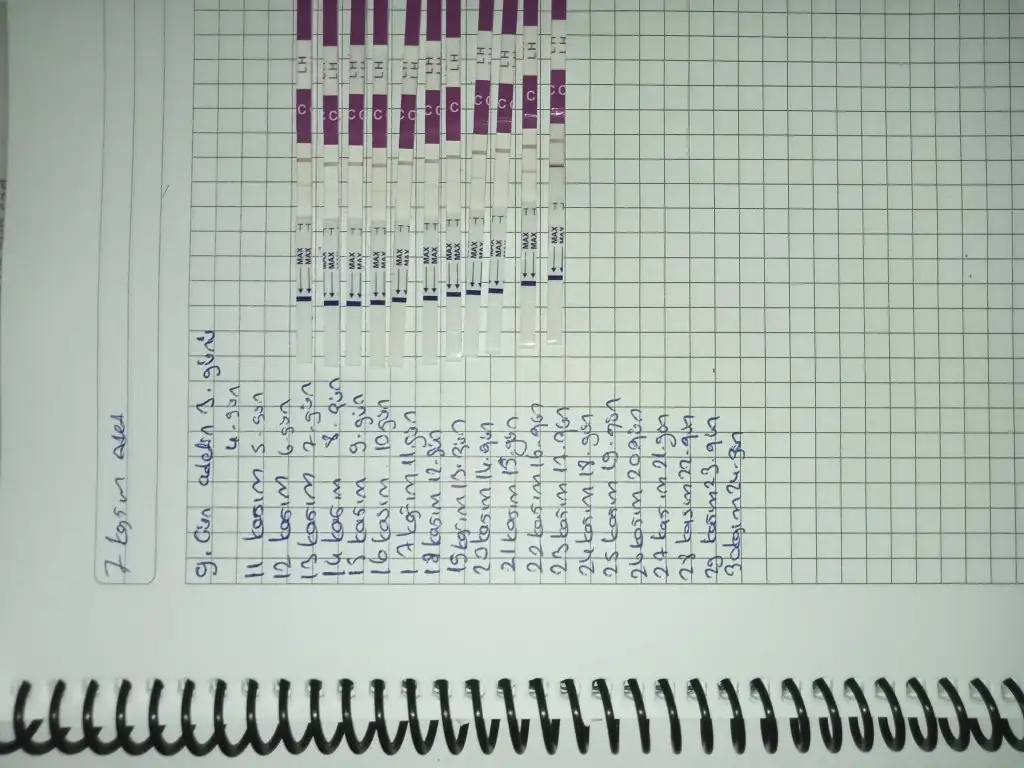 7 kasım adet
9. Gün adetin 3. günü
4. gün
11 kasım 5. gün
12 kasım 6. gün
13 kasım 7. gün
14 kasım 8. gün
15 kasım 9. gün
16 kasım 10 gün
17 kasım 11. gün
18 kasım 12. gün
19 kasım 13. gün
20 kasım 14. gün
21 kasım 15. gün
22 kasım 16. gün
23 kasım 17. gün
24 kasım 18. gün
25 kasım 19. gün
26 kasım 20 gün
27 kasım 21. gün
28 kasım 22. gün
29 kasım 23. gün
30 kasım 24. gün
LH C T MAX MAX
LH C T MAX MAX
LH C T MAX MAX
LH C T MAX MAX
LH C T MAX MAX
LH C T MAX MAX
LH C T MAX MAX
LH C T MAX MAX
LH C T MAX MAX
LH C T MAX MAX
LH C T MAX MAX